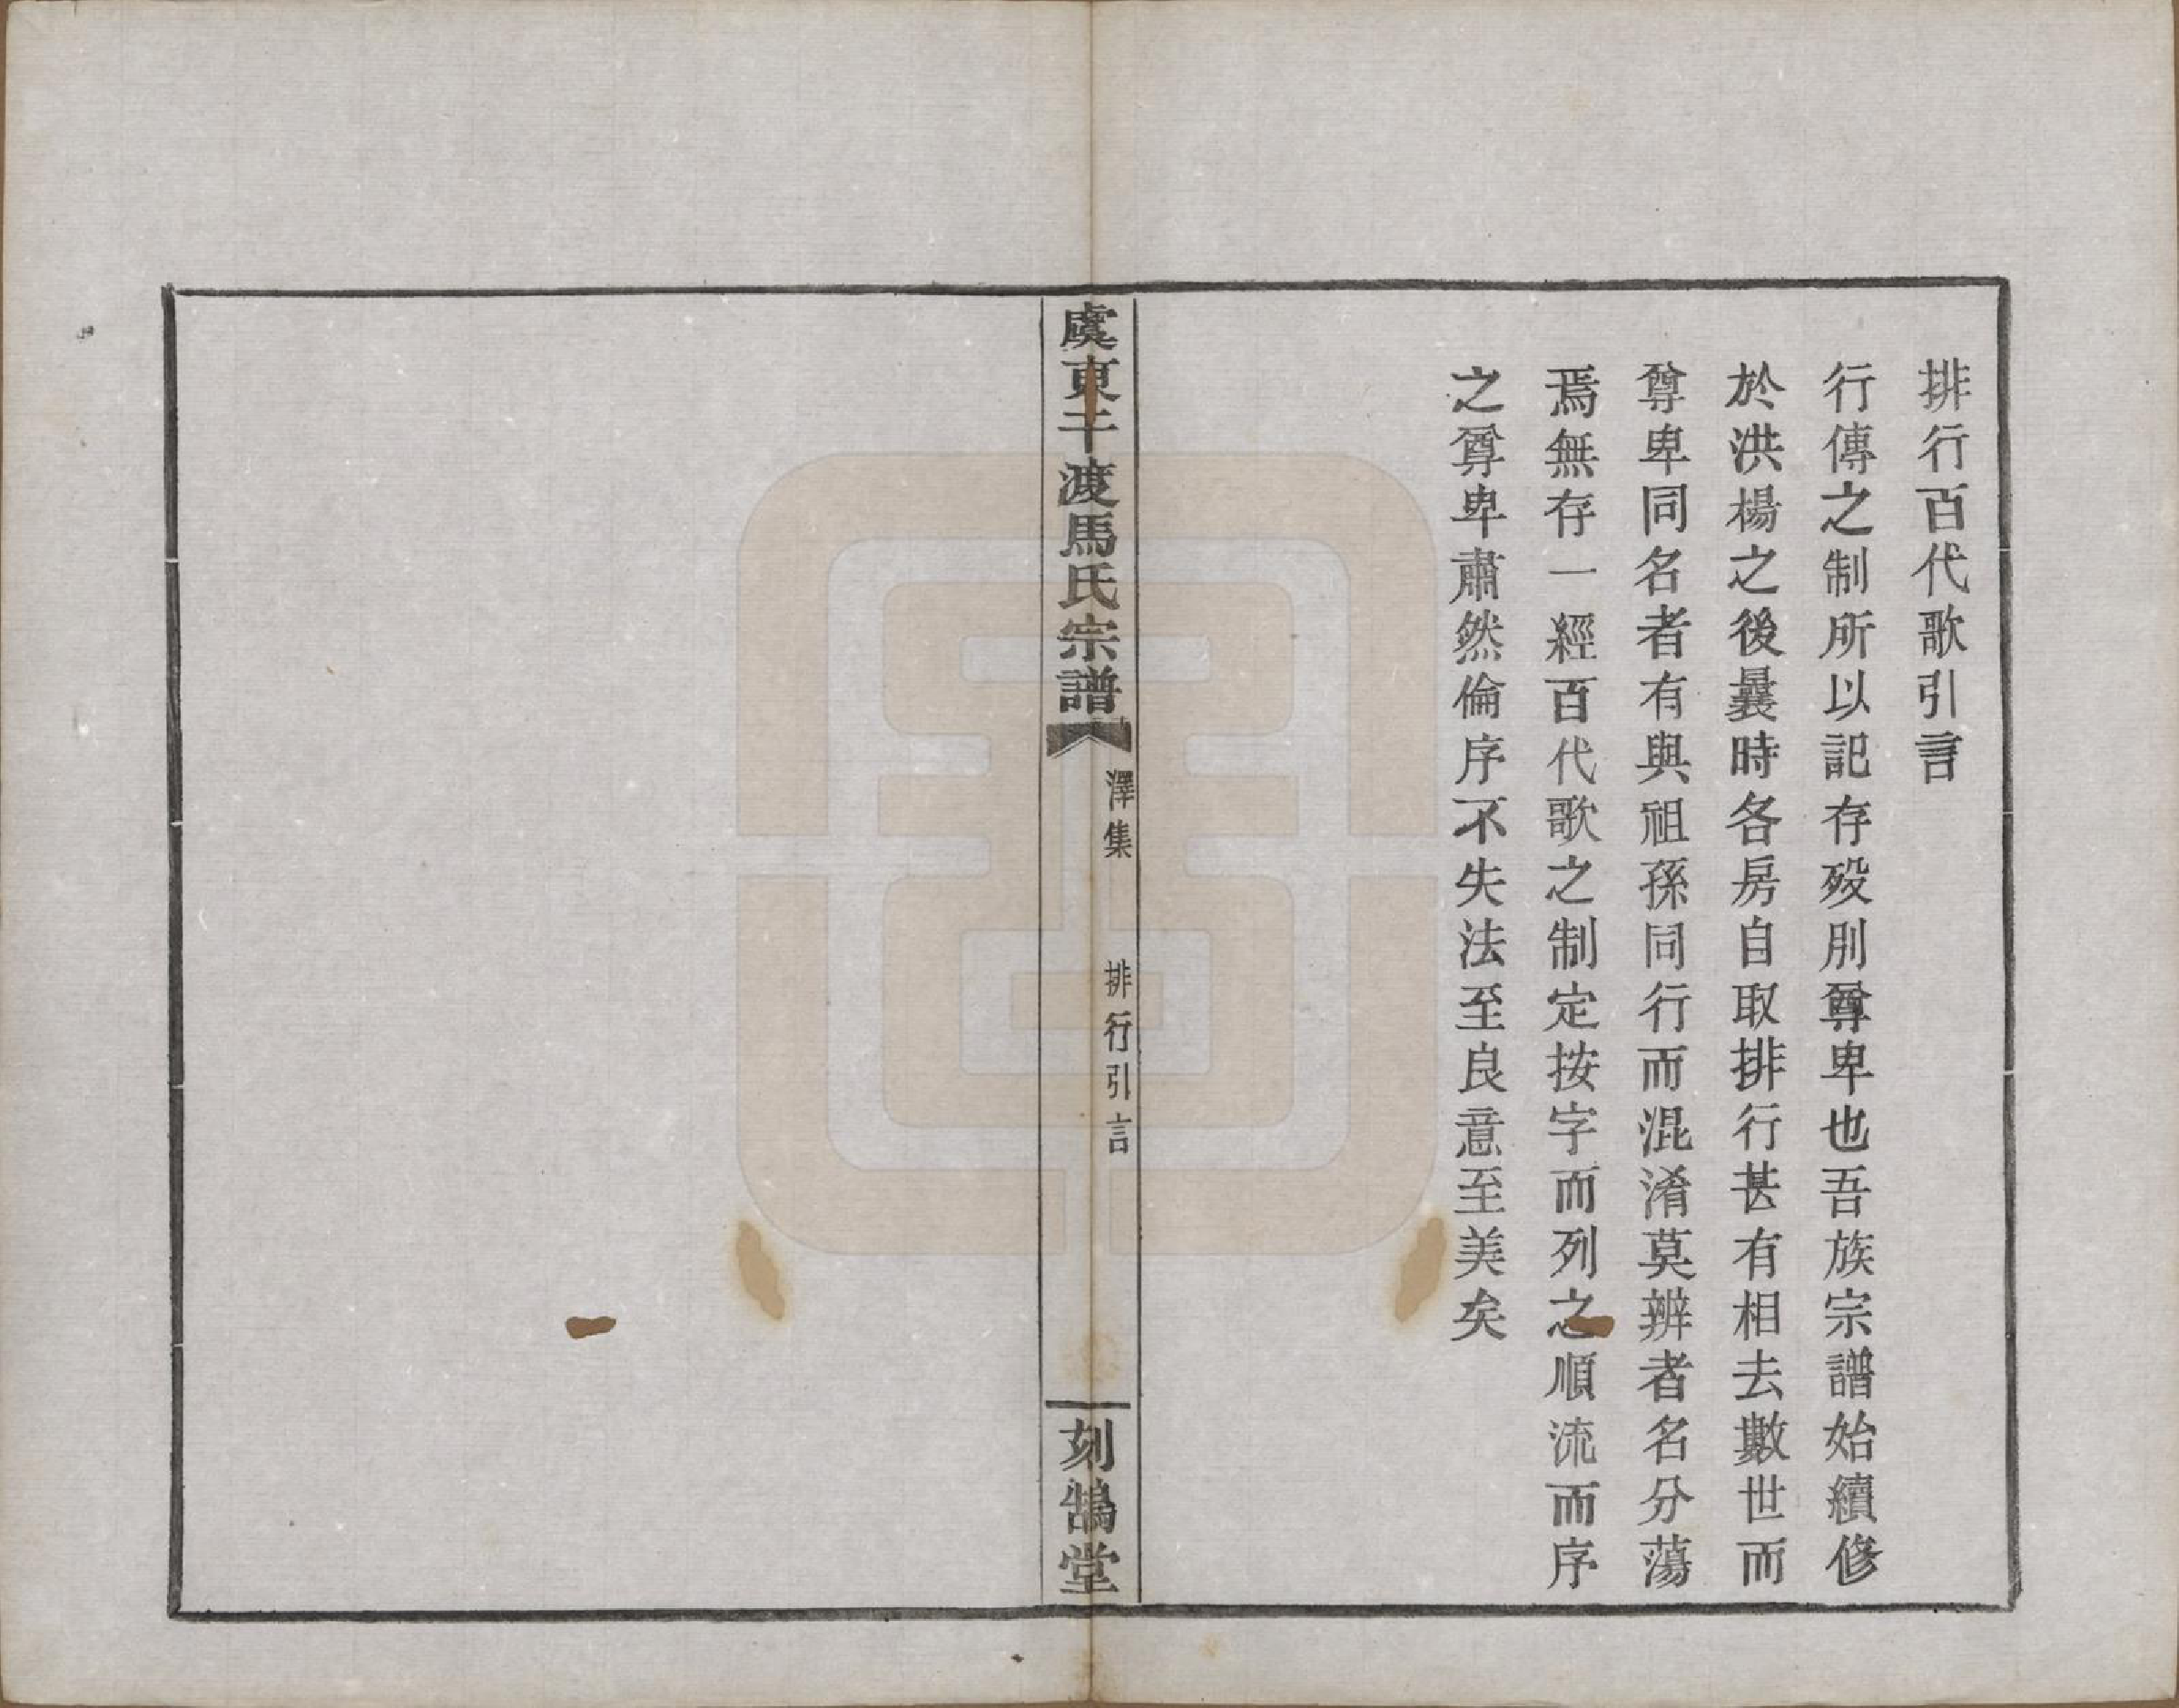 排行百代歌引言
行傳之制所以記存歿別尊卑也吾族宗譜始續修
於洪楊之後曩時各房自取排行甚有相去數世而
尊卑同名者有與祖孫同行而混淆莫辨者名分蕩
焉無存一經百代歌之制定按字而列之順流而序
之尊卑肅然倫序不失法至良意至美矣
虞東干渡馬氏宗譜
澤集
排行引言
刻鵠堂